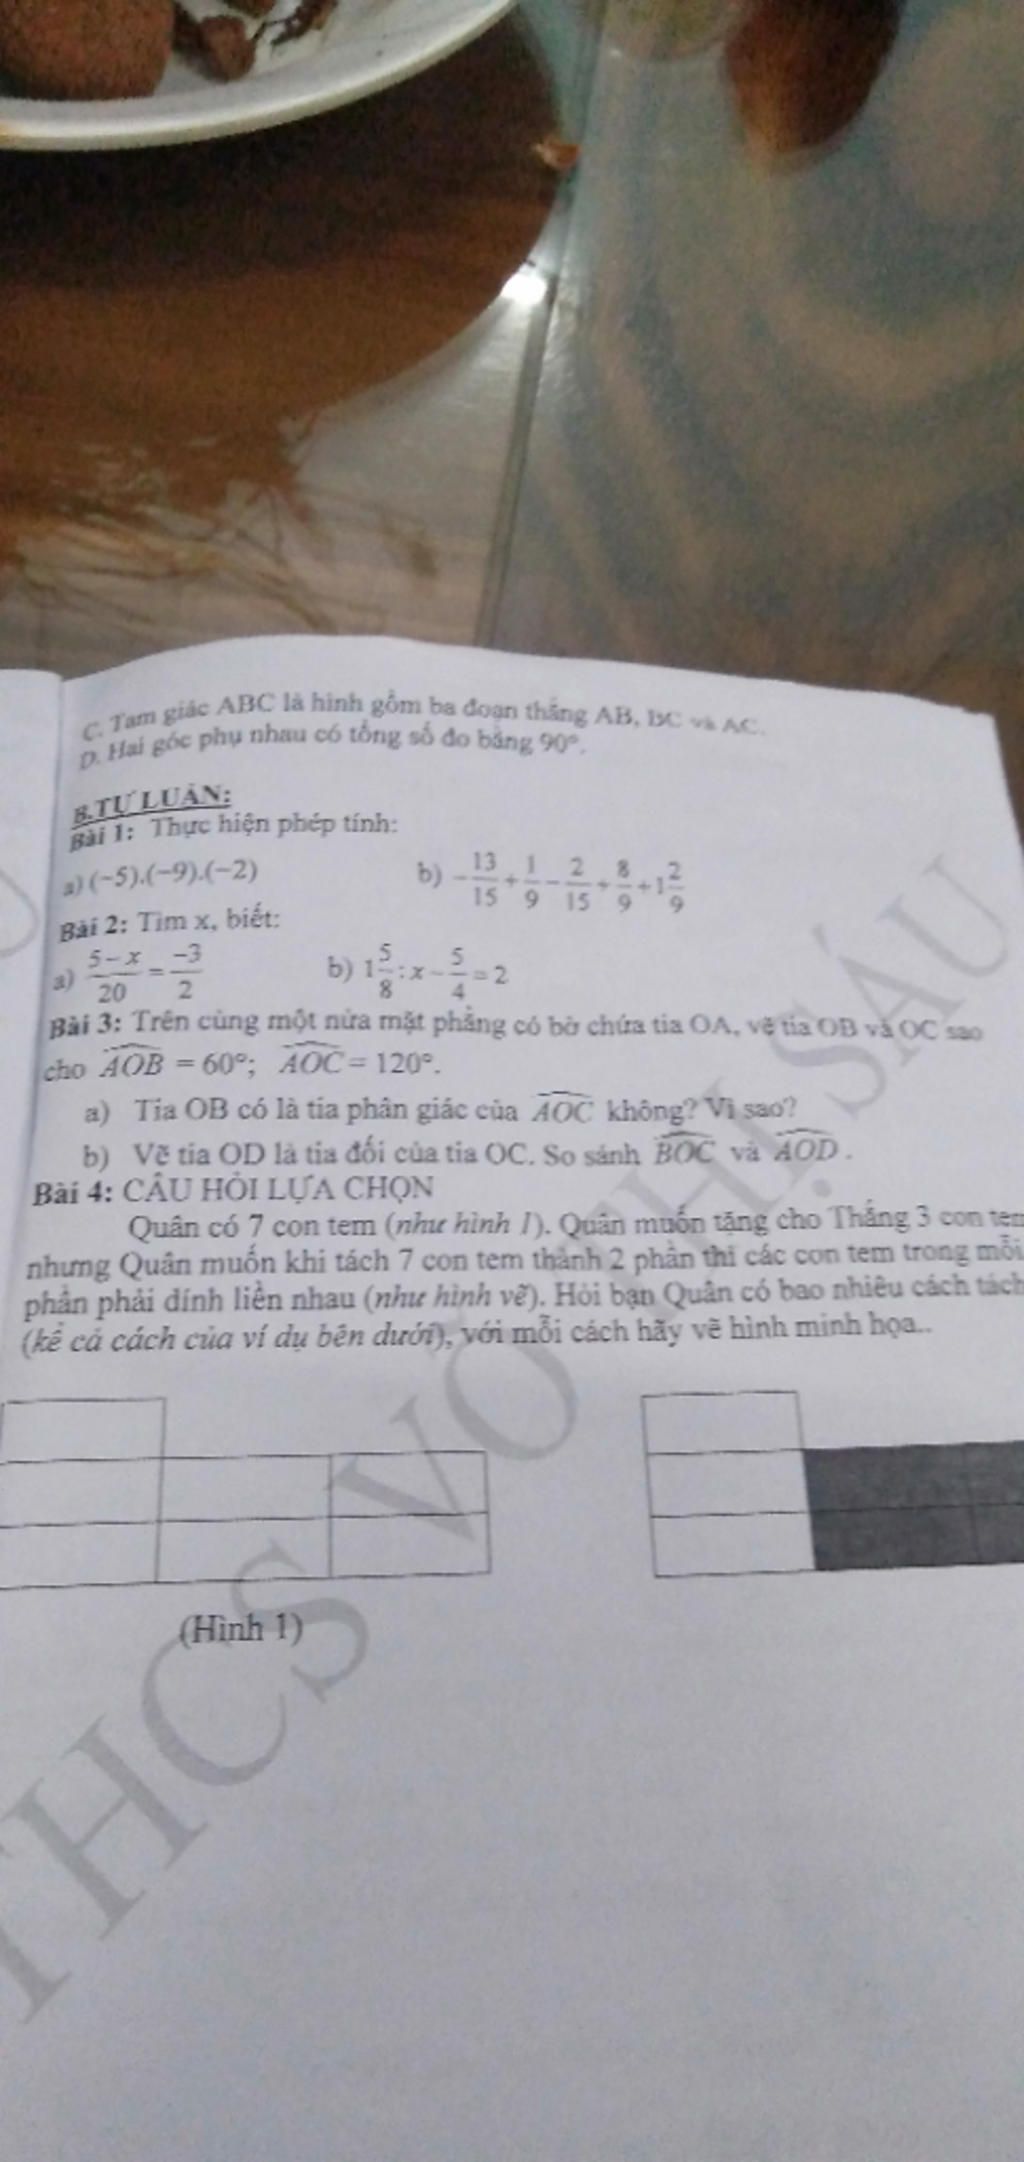 C. Tam giác ABC là hình gồm ba đoạn thẳng AB, BC và AC.
D. Hai góc phụ nhau có tổng số đo bằng 90°.
B.TỰ LUẬN:
Bài 1: Thực hiện phép tính:
a) (−5).(−9).(−2) b) −13/15 + 1/9 − 2/15 + 8/9 + 1 2/9
Bài 2: Tìm x, biết:
a) (5−x)/20 = −3/2 b) 1 5/8 : x − 5/4 = 2
Bài 3: Trên cùng một nửa mặt phẳng có bờ chứa tia OA, vẽ tia OB và OC sao
cho AOB = 60°; AOC = 120°.
a) Tia OB có là tia phân giác của AOC không? Vì sao?
b) Vẽ tia OD là tia đối của tia OC. So sánh BOC và AOD.
Bài 4: CÂU HỎI LỰA CHỌN
Quân có 7 con tem (như hình 1). Quân muốn tặng cho Thắng 3 con tem
nhưng Quân muốn khi tách 7 con tem thành 2 phần thì các con tem trong mỗi
phần phải dính liền nhau (như hình vẽ). Hỏi bạn Quân có bao nhiêu cách tách
(kể cả cách của ví dụ bên dưới), với mỗi cách hãy vẽ hình minh họa..
(Hình 1)
THCS VÕ THỊ SÁU